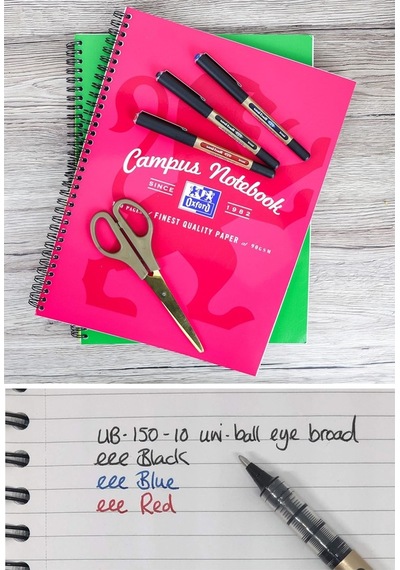 Campus Notebook
SINCE
1982
Oxford
FINEST QUALITY PAPER
90GSM
UB-150-10 uni-ball eye broad
eee Black
eee Blue
eee Red